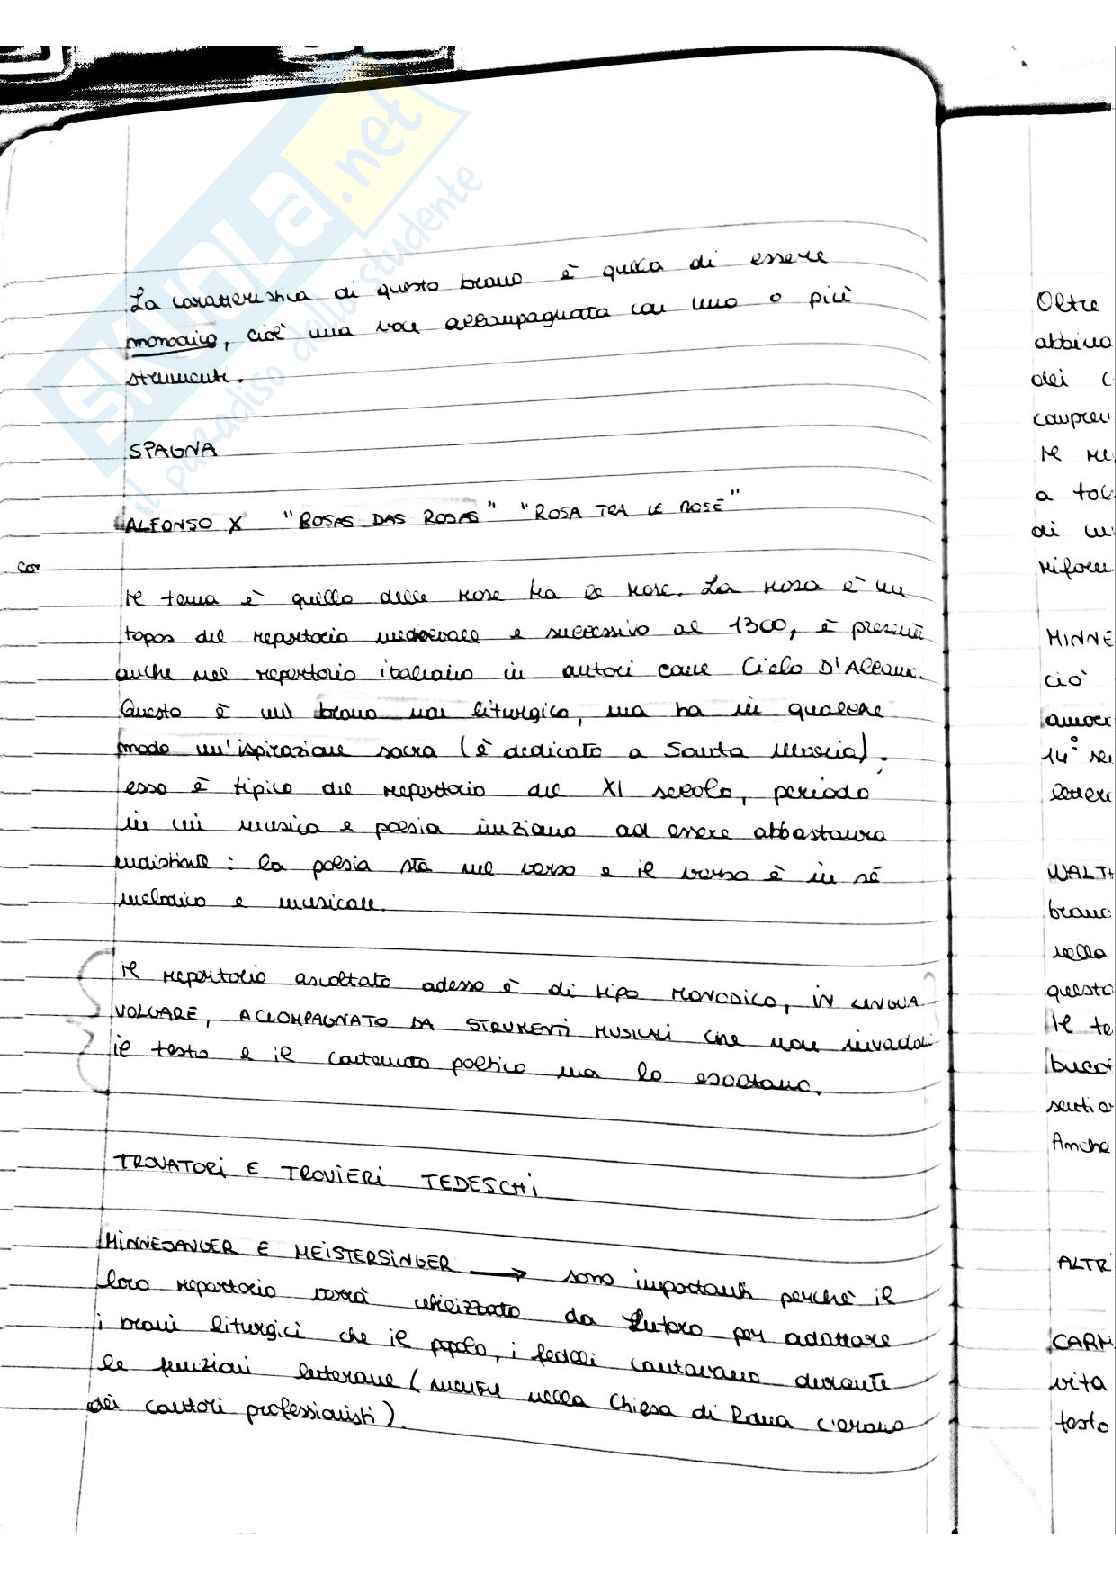 SKUOLA.net
il paradiso dello studente
La caratteristica di questo brano è quella di essere
monodico, cioè una voce accompagnata con uno o più
strumenti.
SPAGNA
ALFONSO X "ROSAS DAS ROSAS" "ROSA TRA LE ROSE"
Il tema è quello delle rose tra le rose. La rosa è un
topos del repertorio medoevale e successivo al 1300, è presente
anche nel repertorio italiano in autori come Cielo D'Alcamo.
Questo è un brano non liturgico, ma ha in qualche
modo un'ispirazione sacra (è dedicato a Santa Maria).
esso è tipico del repertorio del XI secolo, periodo
in cui musica e poesia iniziano ad essere abbastanza
indistinte: la poesia sta nel verso e il verso è in sé
melodico e musicale.
Il repertorio ascoltato adesso è di tipo MONODICO, IN LINGUA
VOLGARE, ACCOMPAGNATO DA STRUMENTI MUSICALI che non invadono
il testo e il contenuto poetico ma lo esaltano.
TROVATORI E TROVIERI TEDESCHI
MINNESANGER E MEISTERSINGER → sono importanti perché il
loro repertorio verrà utilizzato da Lutero per adattare
i brani liturgici che il popolo, i fedeli cantavano durante
le funzioni luterane (mentre nella Chiesa di Roma c'erano
dei cantori professionisti).
con
Oltre
abbiva
dei
a
di
MINNE
ciò
amor
14°
WALTH
brano
nella
questo
Il te
Anche
ALTR
CARM
vita
testo